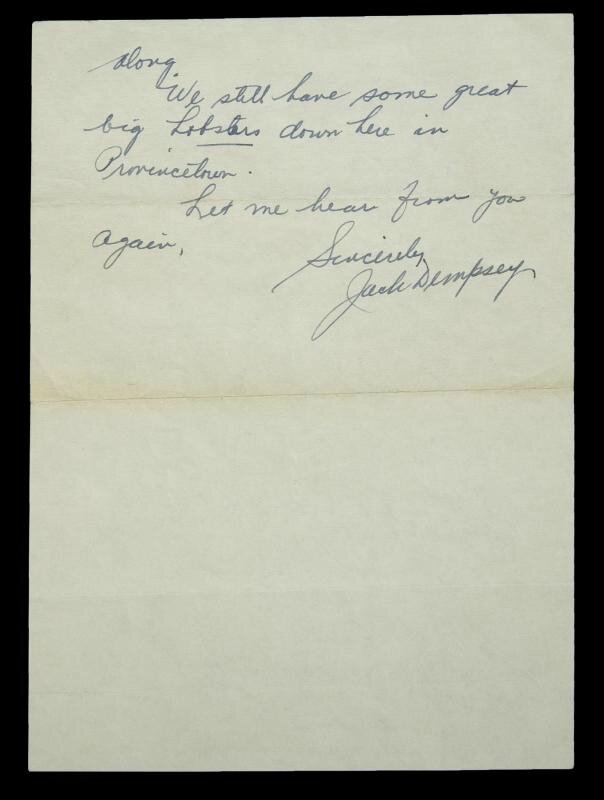 along.
We still have some great
big Lobsters down here in
Provincetown.
Let me hear from you
again,
Sincerely,
Jack Dempsey